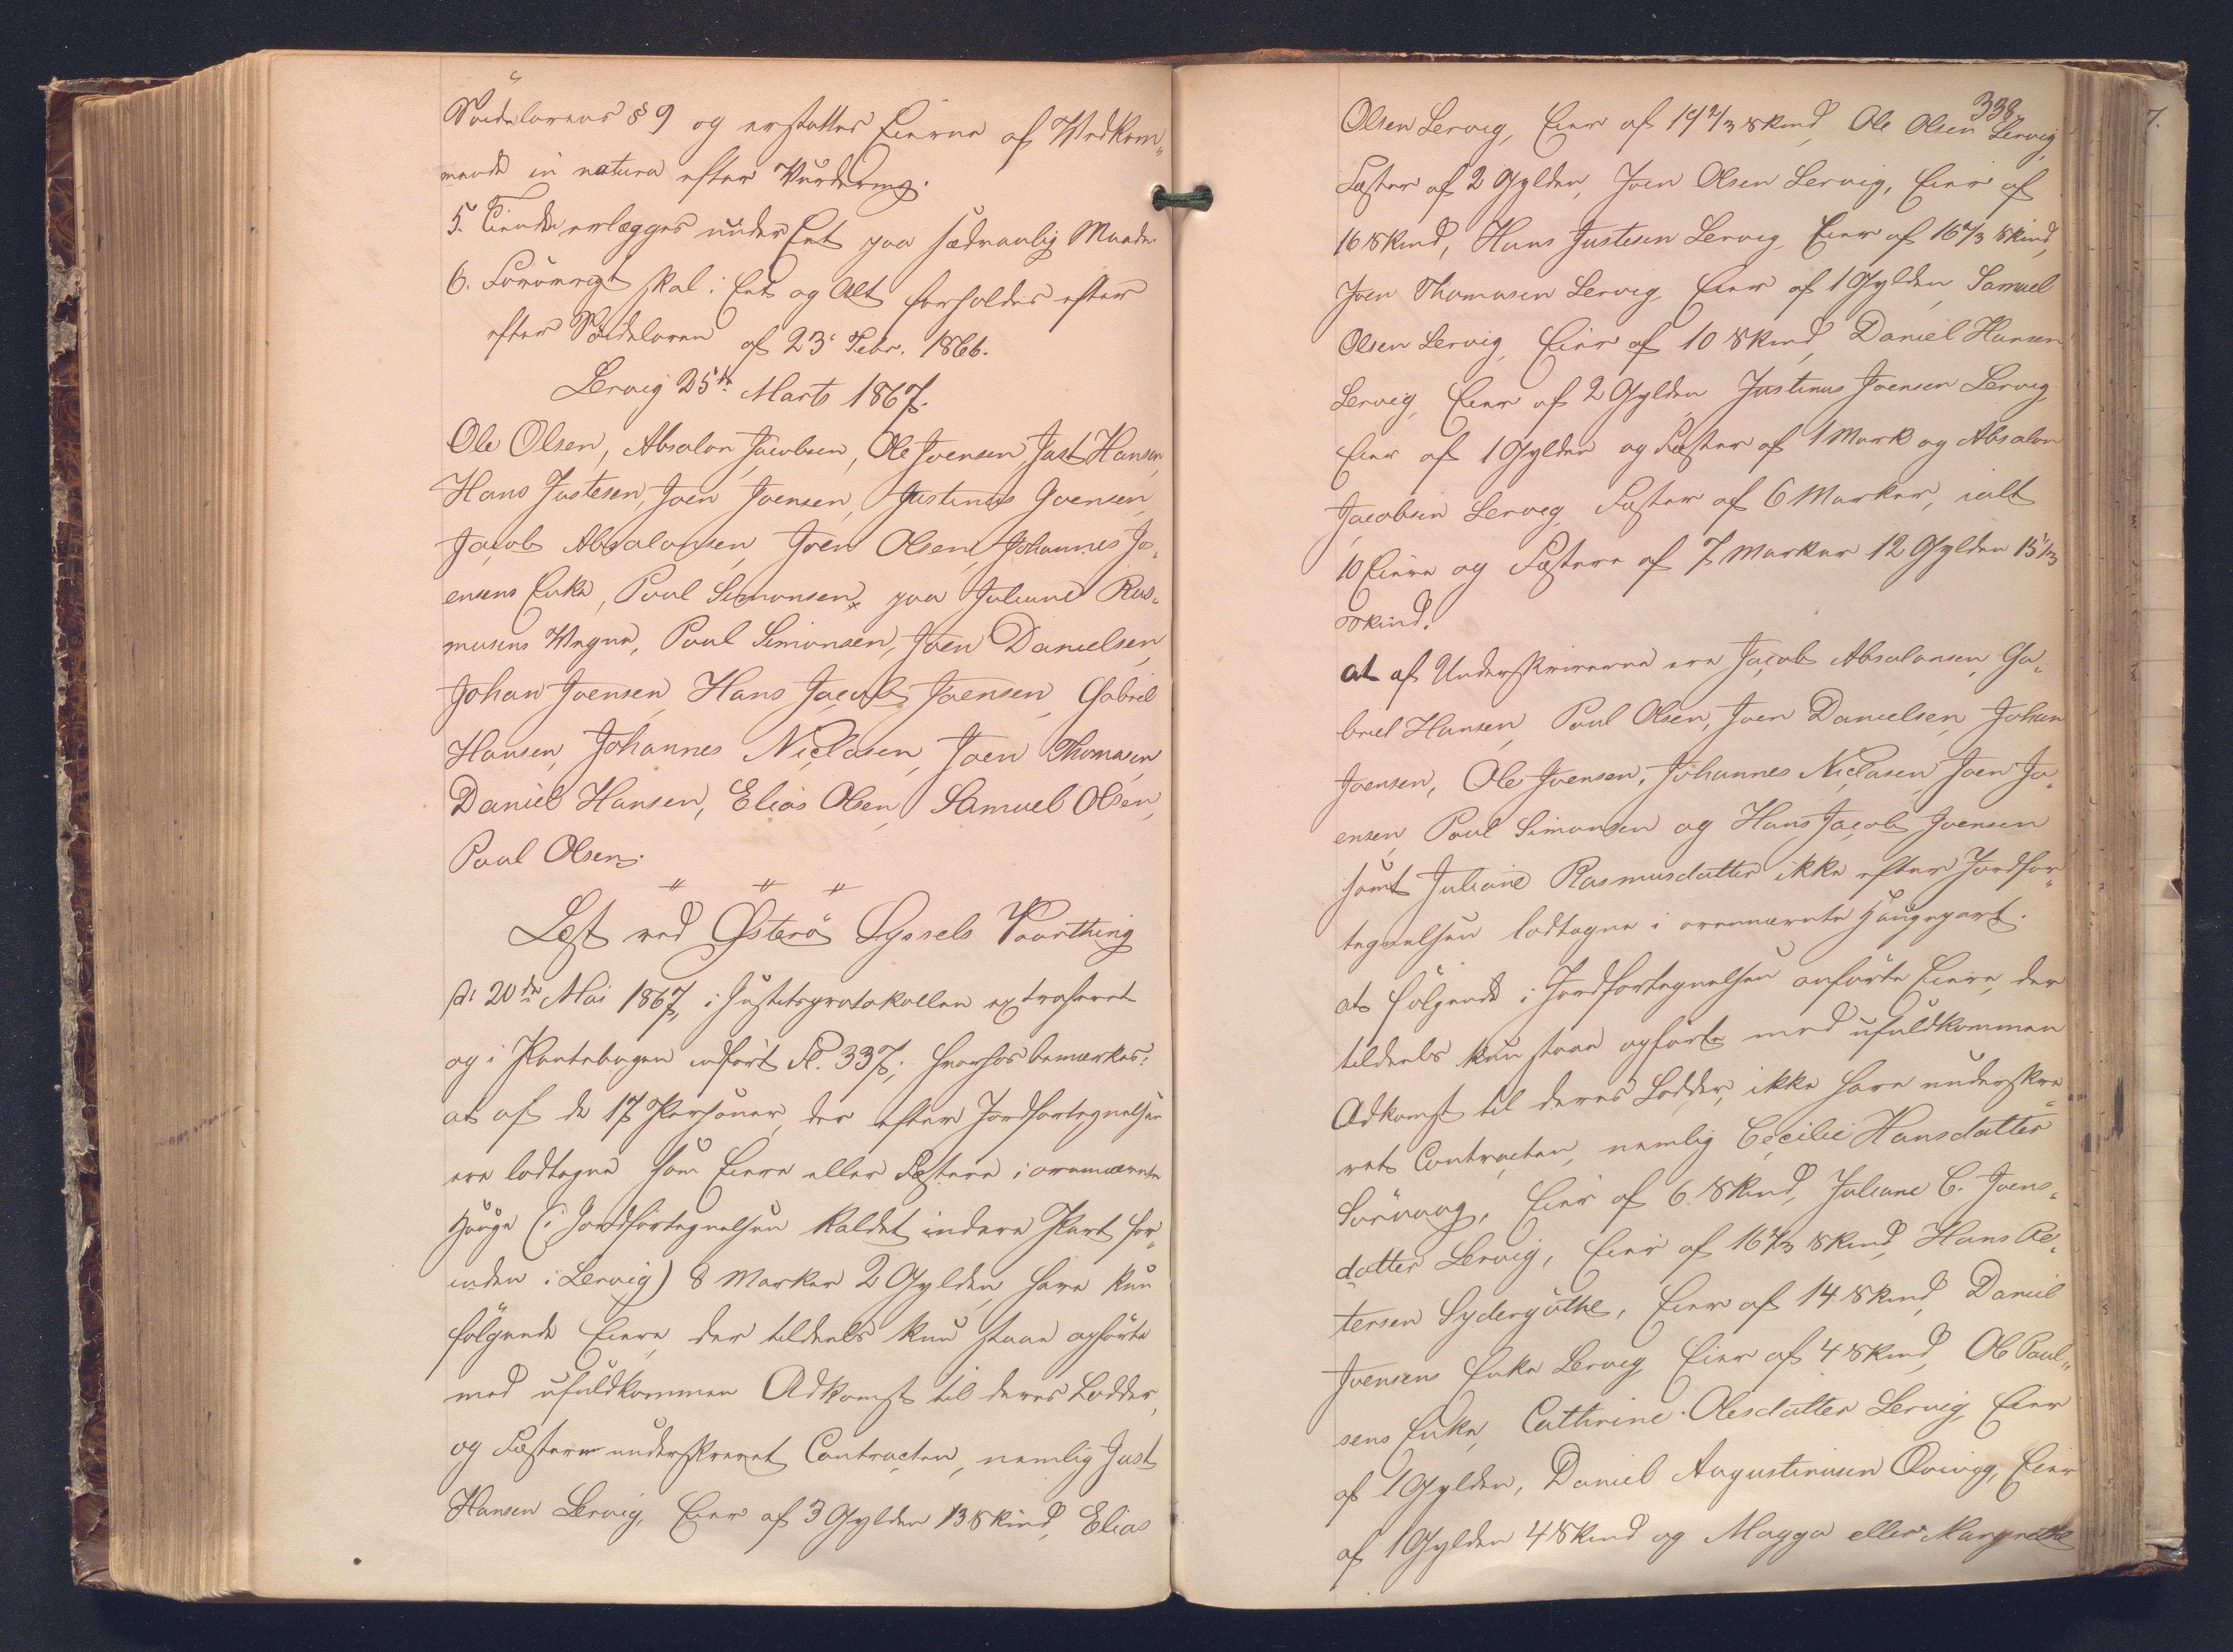 Söidelovens § 9 og erstattes Eierne af Vedkom„
mende in natura efter Vurdering.
5. Tiende erlægges under Eet paa sædvanlig Maade
6. Forövrigt skal i Eet og Alt forholdes efter
efter Söideloven af 23' Febr. 1866.
Lervig 25de Marts 1867.
Ole Olsen, Absalon Jacobsen, Ole Joensen, Just Hansen,
Hans Justesen, Joen Joensen, Justinus Joensen,
Jacob Absalonsen, Joen Olsen, Johannes Jo„
ensens Enke, Poul Simonsen paa Juliane Ras„
musens Vegne, Poul Simonsen, Joen Danielsen,
Johan Joensen, Hans Jacob Joensen, Gabriel
Hansen, Johannes Niclasen, Joen Thomasen
Daniel Hansen, Elias Olsen, Samuel Olsen,
Poul Olsen.
Læst ved Österö Syssels Vaarthing
d: 20de Mai 1867, i Justitsprotokollen extraheret
og i Pantebogen indfört Fl. 337; hvorhos bemærkes:
at af de 17 Personer, der efter Jordfortegnelsen
ere lodtagne som Eiere eller Fæstere i ovennævnte
Hauge (i Jordfortegnelsen kaldet indere Part for„
inden i Lervig) 8 Marker 2 Gylden, have kun
fölgende Eiere, der tildeels kun staae opförte
med ufuldkommen Adkomst til deres Lodder,
og Fæstere underskrevet Contracten, nemlig Just
Hansen Lervig, Eier af 3 Gylden 13 Skind, Elias
338.
Olsen Lervig, Eier af 19 2/3 Skind, Ole Olsen Lervig
Fæster af 2 Gylden, Joen Olsen Lervig, Eier af
16 Skind, Hans Justesen Lervig Eier af 16 2/3 Skind,
Joen Thomasen Lervig Eier af 1 Gylden, Samuel
Olsen Lervig, Eier af 10 Skind, Daniel Hansen
Lervig, Eier af 2 Gylden Justinus Joensen Lervig,
Eier af 1 Gylden og Fæster af 1 Mark og Absalon
Jacobsen Lervig Fæster af 6 Marker, ialt
10 Eiere og Fæstere af 7 Marker 12 Gylden 15 1/3
Skind.
at af Underskriverne ere Jacob Absalonsen, Ga„
briel Hansen, Poul Olsen, Joen Danielsen, Johan
Joensen, Ole Joensen, Johannes Niclasen, Joen Jo„
ensen, Poul Simonsen og Hans Jacob Joensen
samt Juliane Rasmusdatter ikke efter Jordfor„
tegnelsen lodtagne i ovennævnte Haugepart.
at fölgende i Jordfortegnelsen anförte Eiere, der
tildeels kun staae opförte med ufuldkommen
Adkomst til deres Lodder, ikke have underskre„
vet Contracten, nemlig Cecilie Hansdatter
Sörvaag, Eier af 6 Skind, Juliane C. Joens„
datter Lervig, Eier af 16 2/3 Skind, Hans Pe„
tersen Sydergöthe, Eier af 14 Skind, Daniel
Joensens Enke Lervig Eier af 4 Skind, Ole Poul„
sens Enke, Cathrine Olesdatter Lervig, Eier
af 1 Gylden, Daniel Augustinusen Qvivig, Eier
af 1 Gylden 4 Skind og Magga eller Margrethe